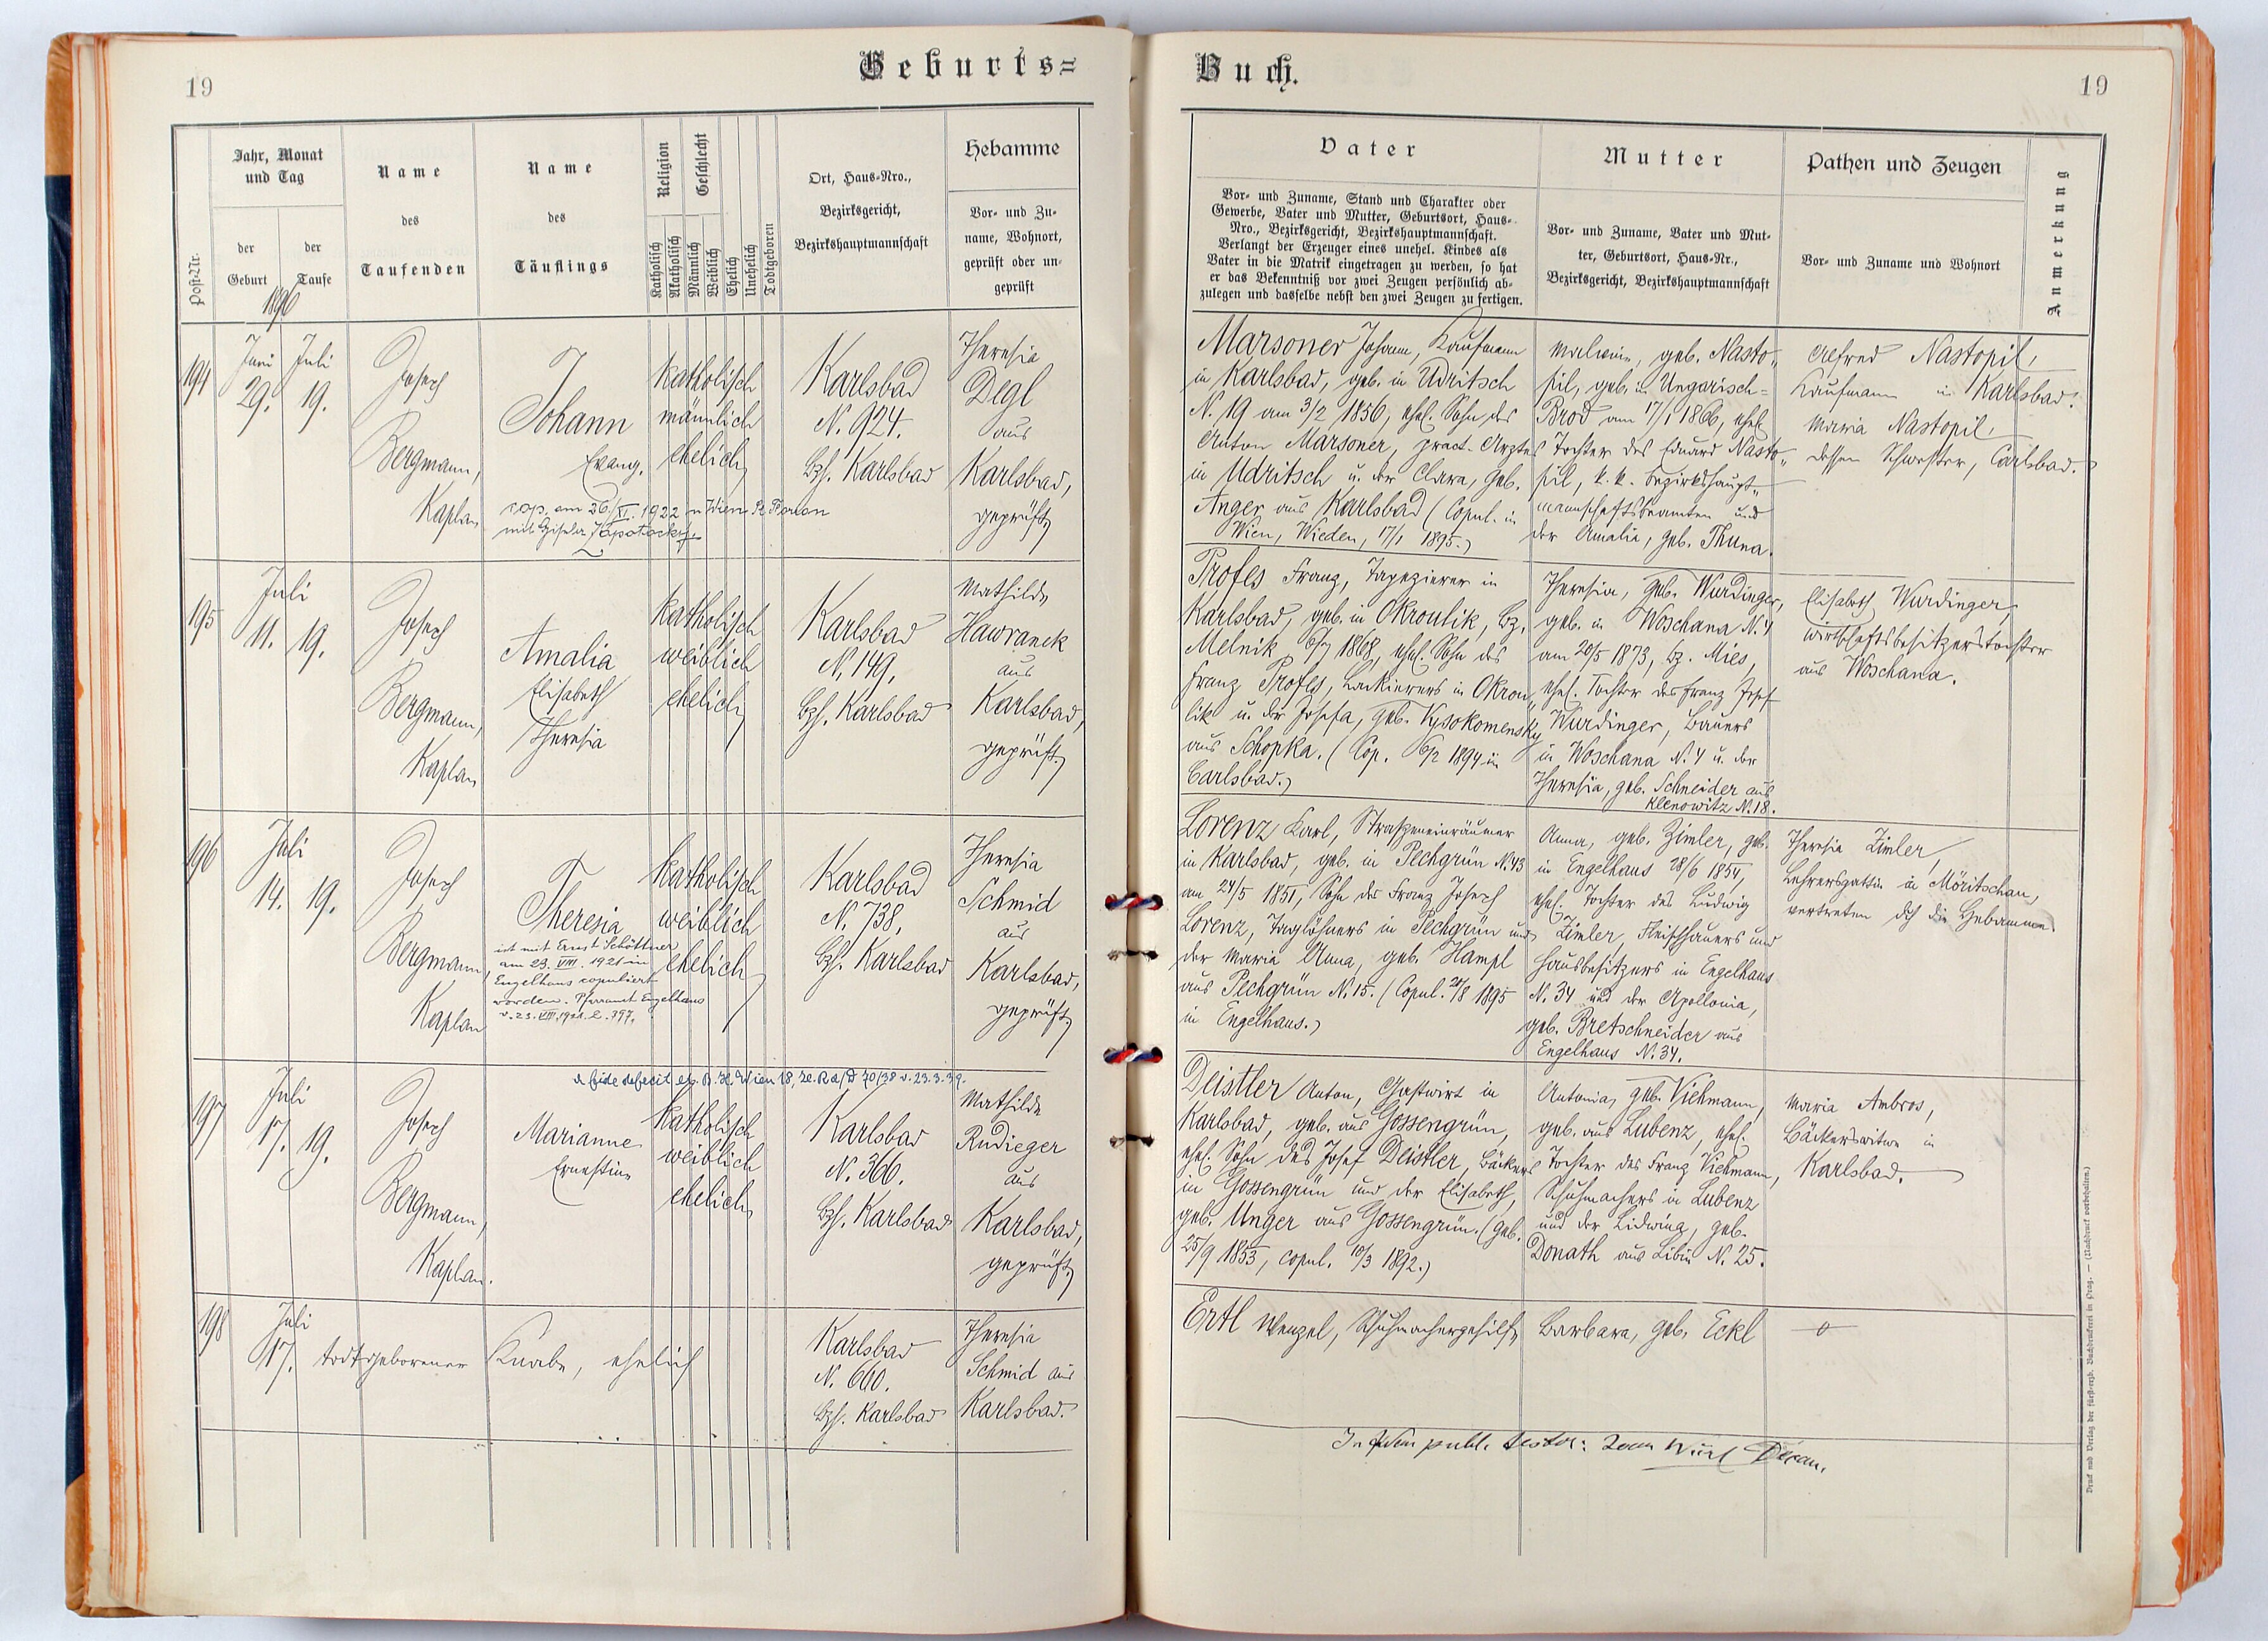 19
Geburts=
Jahr, Monat
und Tag
Name
des
Taufenden
Name
des
Täuflings
Religion
Geschlecht
Ort, Haus-Nro.,
Bezirksgericht,
Bezirkshauptmannschaft
Hebamme
Post-Nr.
der
Geburt
der
Taufe
1896
Katholisch
Akatholisch
Männlich
Weiblich
Ehelich
Unehelich
Todtgeboren
Vor- und Zu-
name, Wohnort,
geprüft oder un-
geprüft
194
Juni
29.
Juli
19.
Joseph
Bergmann,
Kaplan
Johann
Evang.
cop. am 26./XI. 1922 in Wien St. Florian
mit Gisela Zapotocky
katholisch
männlich
ehelich
Karlsbad
N. 924.
Bzh. Karlsbad
Theresia
Degl
aus
Karlsbad,
geprüft
195
Juli
11.
19.
Joseph
Bergmann,
Kaplan
Amalia
Elisabeth
Theresia
katholisch
weiblich
ehelich
Karlsbad
N. 149.
Bzh. Karlsbad
Mathilde
Hawranek
aus
Karlsbad,
geprüft
196
Juli
14.
19.
Joseph
Bergmann,
Kaplan
Theresia
ist mit Ernst Schöttner
am 23. VIII. 1921 in
Engelhaus copuliert
worden. Pfarramt Engelhaus
v. 23. VIII. 1921. Z. 397.
katholisch
weiblich
ehelich
Karlsbad
N. 738.
Bzh. Karlsbad
Theresia
Schmid
aus
Karlsbad,
geprüft
197
Juli
17.
19.
Joseph
Bergmann,
Kaplan.
a fide defecit B. H. Wien 18, v. 23.3.39.
Marianne
Ernestine
katholisch
weiblich
ehelich
Karlsbad
N. 366.
Bzh. Karlsbad
Mathilde
Rudieger
aus
Karlsbad,
geprüft
198
Juli
17.
todtgeborener Knabe, ehelich
Karlsbad
N. 660.
Bzh. Karlsbad
Theresia
Schmid aus
Karlsbad.
Buch.
19
Vater
Vor- und Zuname, Stand und Charakter oder
Gewerbe, Vater und Mutter, Geburtsort, Haus-
Nro., Bezirksgericht, Bezirkshauptmannschaft.
Verlangt der Erzeuger eines unehel. Kindes als
Vater in die Matrik eingetragen zu werden, so hat
er das Bekenntniß vor zwei Zeugen persönlich ab-
zulegen und dasselbe nebst den zwei Zeugen zu fertigen.
Mutter
Vor- und Zuname, Vater und Mut-
ter, Geburtsort, Haus-Nr.,
Bezirksgericht, Bezirkshauptmannschaft
Pathen und Zeugen
Vor- und Zuname und Wohnort
Anmerkung
Marsoner Johann, Kaufmann
in Karlsbad, geb. in Udritsch
N. 19 am 3/2 1856, ehel. Sohn des
Anton Marsoner, pract. Arztes
in Udritsch u. der Clara, geb.
Anger aus Karlsbad (Copul. in
Wien, Wieden, 17/1 1895.)
Malwine, geb. Nasto-
pil, geb. in Ungarisch-
Brod am 17/1 1866, ehel.
Tochter des Eduard Nasto-
pil, k. k. Bezirkshaupt-
mannschaftsbeamten und
der Amalia, geb. Thuna.
Alfred Nastopil,
Kaufmann in Karlsbad.
Maria Nastopil,
dessen Schwester, Carlsbad.
Profes Franz, Tapezierer in
Karlsbad, geb. in Okroulik, Bz.
Melnik 6/7 1868, ehel. Sohn des
Franz Profes, Lackierers in Okrou-
lik u. der Josefa, geb. Vysokomensky
aus Schopka. (Cop. 6/2 1894 in
Carlsbad.)
Theresia, geb. Wurdinger,
geb. in Woschana N. 4
am 20/5 1873, Bz. Mies,
ehel. Tochter des Franz Josef
Wurdinger, Bauers
in Woschana N. 4 u. der
Theresia, geb. Schneider aus
Klenowitz N. 18.
Elisabeth Wurdinger,
Wirtschaftsbesitzerstochter
aus Woschana.
Lorenz Karl, Straßeneinräumer
in Karlsbad, geb. in Pechgrün N. 43
am 24/5 1851, Sohn des Franz Joseph
Lorenz, Taglöhners in Pechgrün und
der Maria Anna, geb. Hampl
aus Pechgrün N. 15. (Copul. 26/8 1895
in Engelhaus.)
Anna, geb. Zimler, geb.
in Engelhaus 28/6 1854,
ehel. Tochter des Ludwig
Zimler, Fleischhauers und
Hausbesitzers in Engelhaus
N. 34 und der Apollonia,
geb. Bretschneider aus
Engelhaus N. 34.
Theresia Zimler,
Lehrersgattin in Möritschau,
vertreten dch die Hebamme
Deistler Anton, Gastwirt in
Karlsbad, geb. aus Gossengrün,
ehel. Sohn des Josef Deistler, Bäckers
in Gossengrün und der Elisabeth,
geb. Unger aus Gossengrün. (Geb.
25/9 1853, copul. 10/3 1892.)
Antonia, geb. Viehmann,
geb. aus Lubenz, ehel.
Tochter des Franz Viehmann,
Schuhmachers in Lubenz
und der Ludwina, geb.
Donath aus Libin N. 25.
Maria Ambros,
Bäckerswitwe in
Karlsbad.
Ertl Wenzel, Schuhmachergehilfe
Barbara, geb. Eckl
0
In fidem publ. testor: Joan Würl Decan.
Druck und Verlag der fürst-erzb. Buchdruckerei in Prag. — (Nachdruck vorbehalten.)